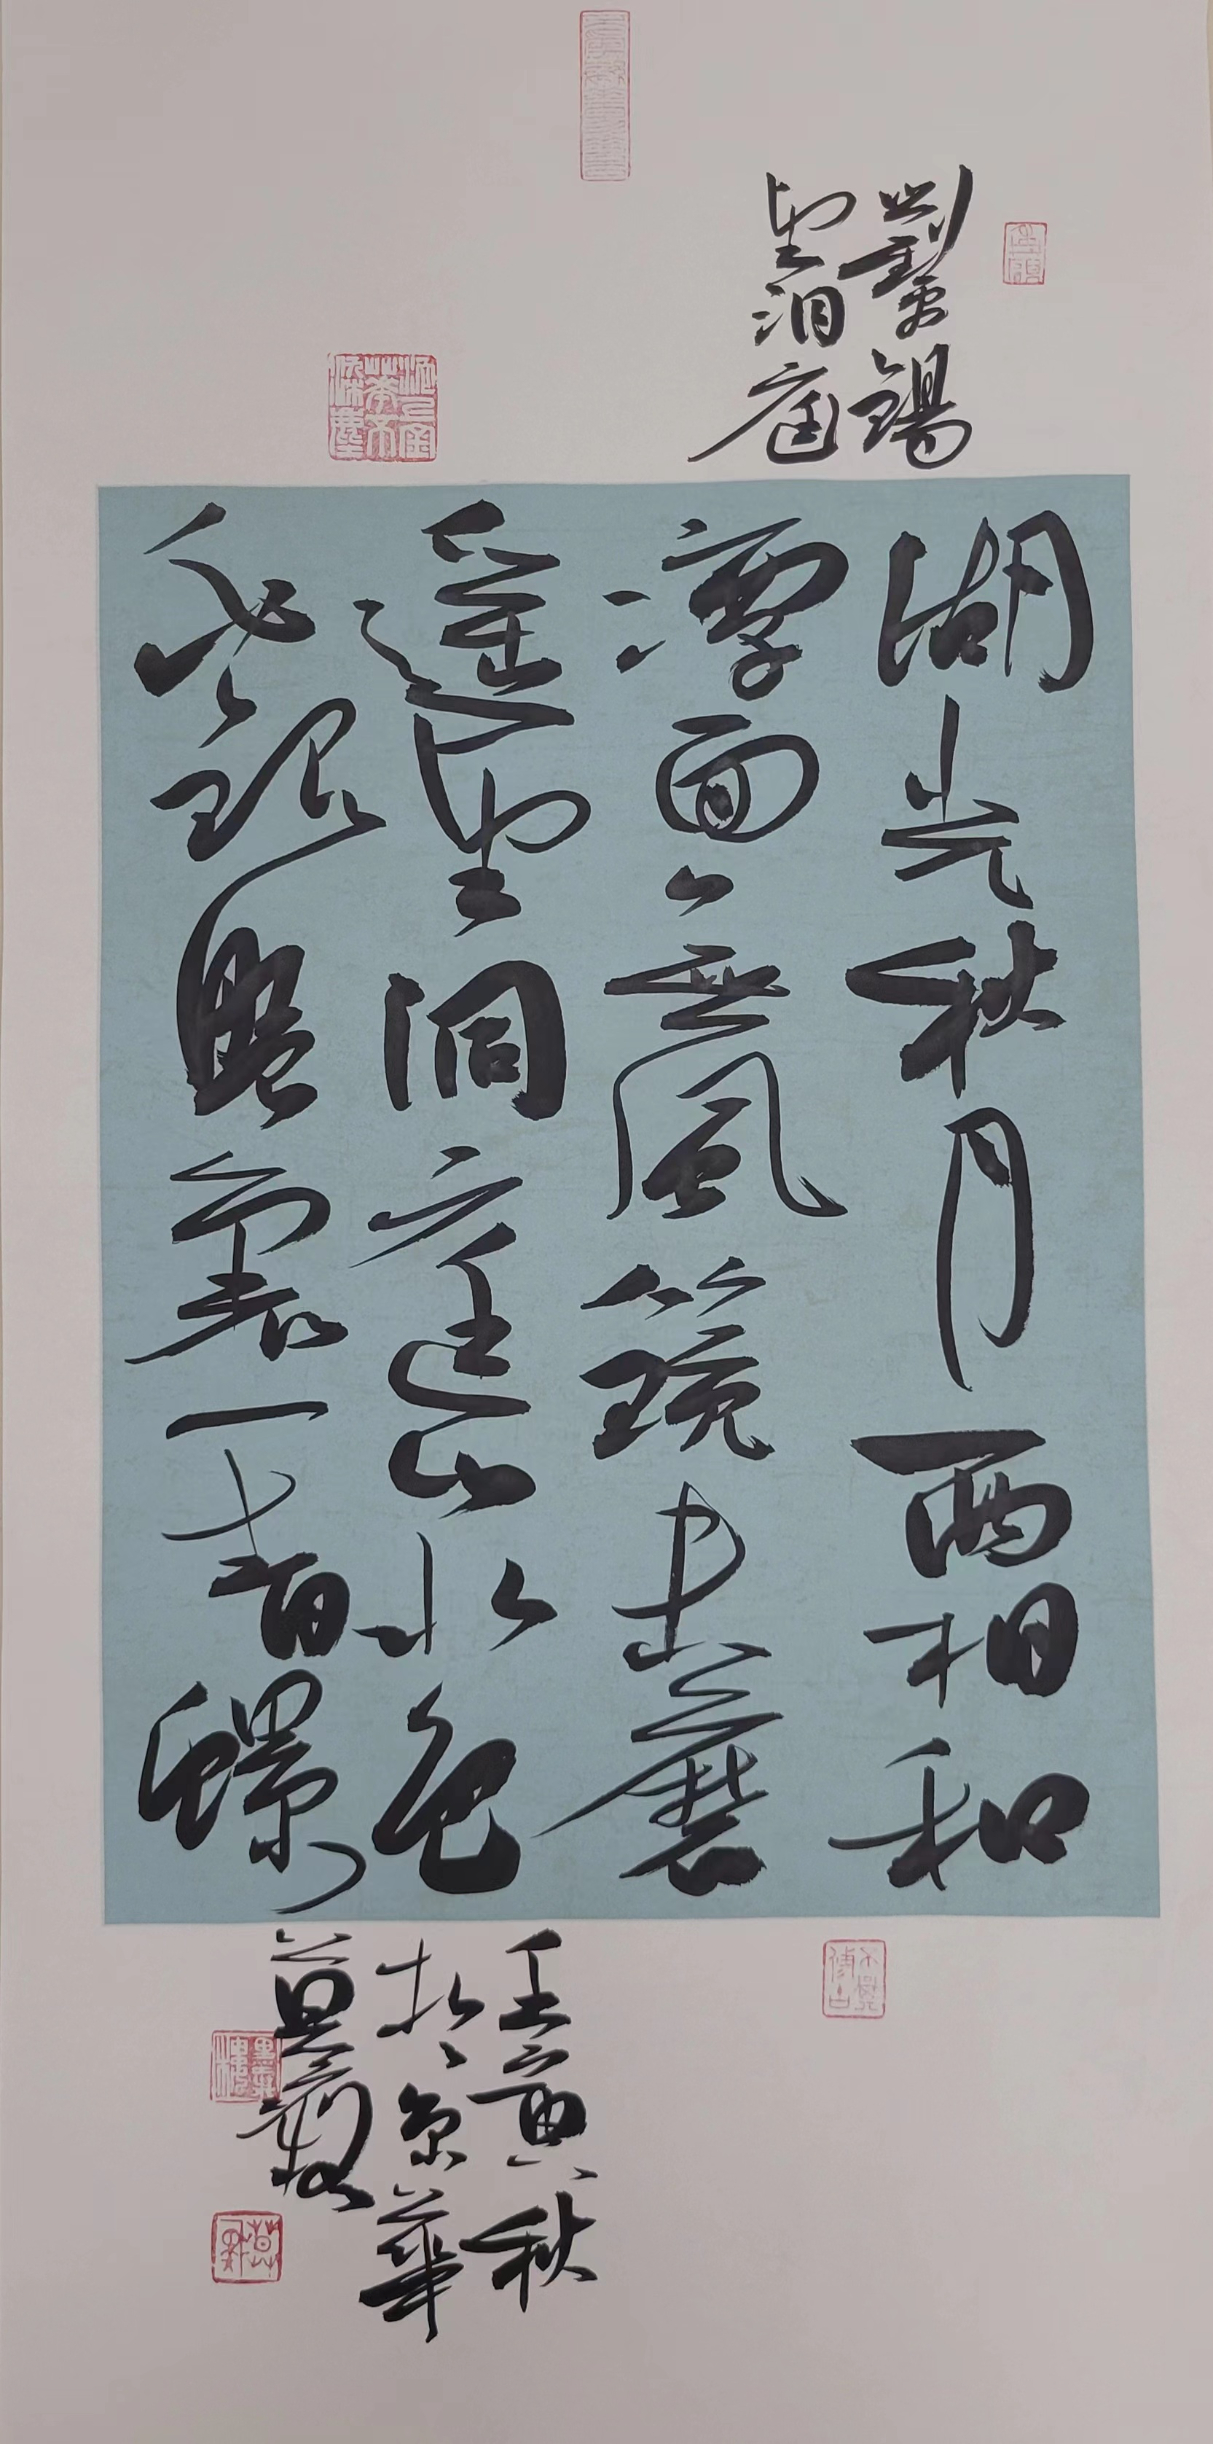 劉禹錫
望洞庭
湖光秋月兩相和
潭面無風鏡未磨
遥望洞庭山水色
白銀盤裏一青螺
壬寅秋
於京華